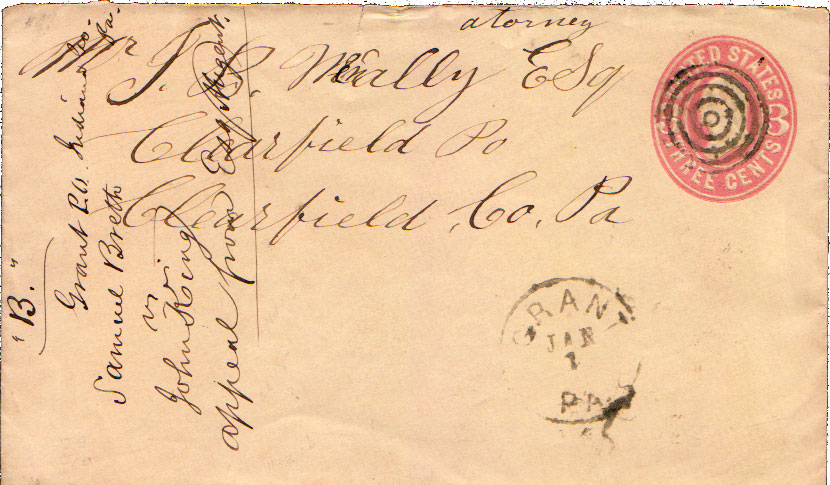 atorney
Mr J. B. McEnally ESq
Clearfield Po
Clearfield, Co, Pa
UNITED STATES
3
THREE CENTS
GRANT
JAN
1
PA
"B."
Grant P.O. Indiana Co. Pa.
Samuel Breth
vs.
John King
appeal from Esq